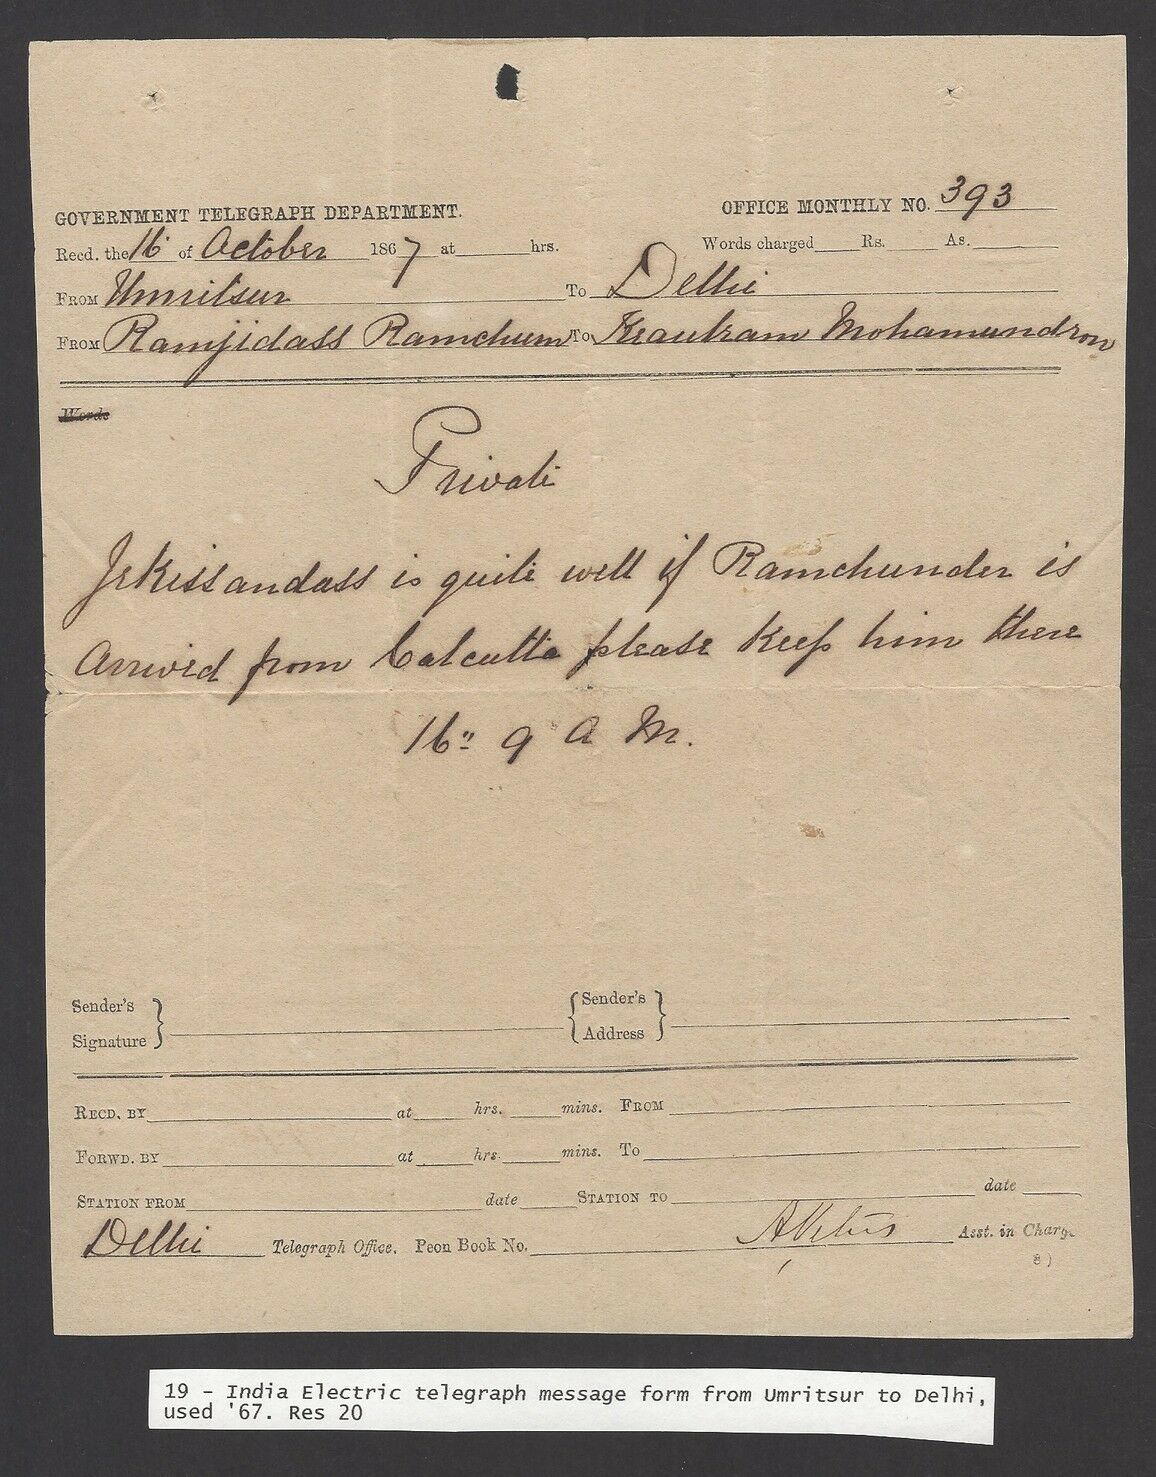 GOVERNMENT TELEGRAPH DEPARTMENT. OFFICE MONTHLY NO. 393
Recd. the 16 of October 1867 at hrs. Words charged Rs. As.
FROM Umritsur To Delhi
FROM Ramjidass Ramchum To Mohamundron
Words
Private
Jekissandass is quite well if Ramchunder is
Arrived from Calcutta please keep him there
16" 9 A M.
Sender's Signature } { Sender's Address }
RECD. BY at hrs. mins. FROM
FORWD. BY at hrs. mins. To
STATION FROM date STATION TO date
Delhi Telegraph Office. Peon Book No. Asst. in Charge
19 - India Electric telegraph message form from Umritsur to Delhi,
used '67. Res 20